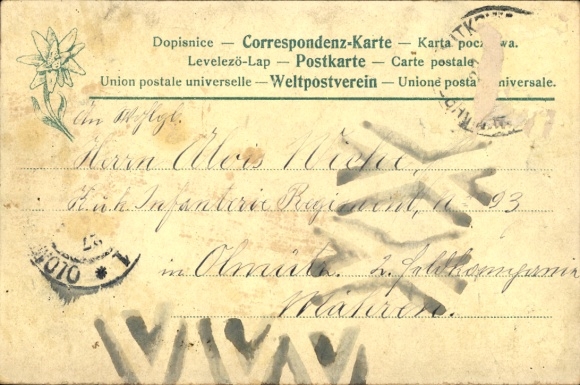 Dopisnice — Correspondenz-Karte — Karta pocztowa.
Levelező-Lap — Postkarte — Carte postale
Union postale universelle — Weltpostverein — Unione postale universale.
An
Herrn Alois
K. u. k. Infanterie Regiment, N 93
in Olmütz. 2. Feldkompanie
Mähren.
1 * OLO
27